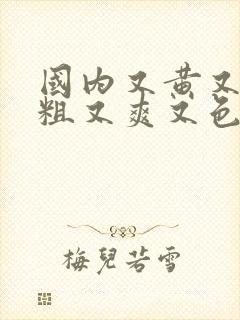 國内又黄又
粗又爽又色
梅兒若雪